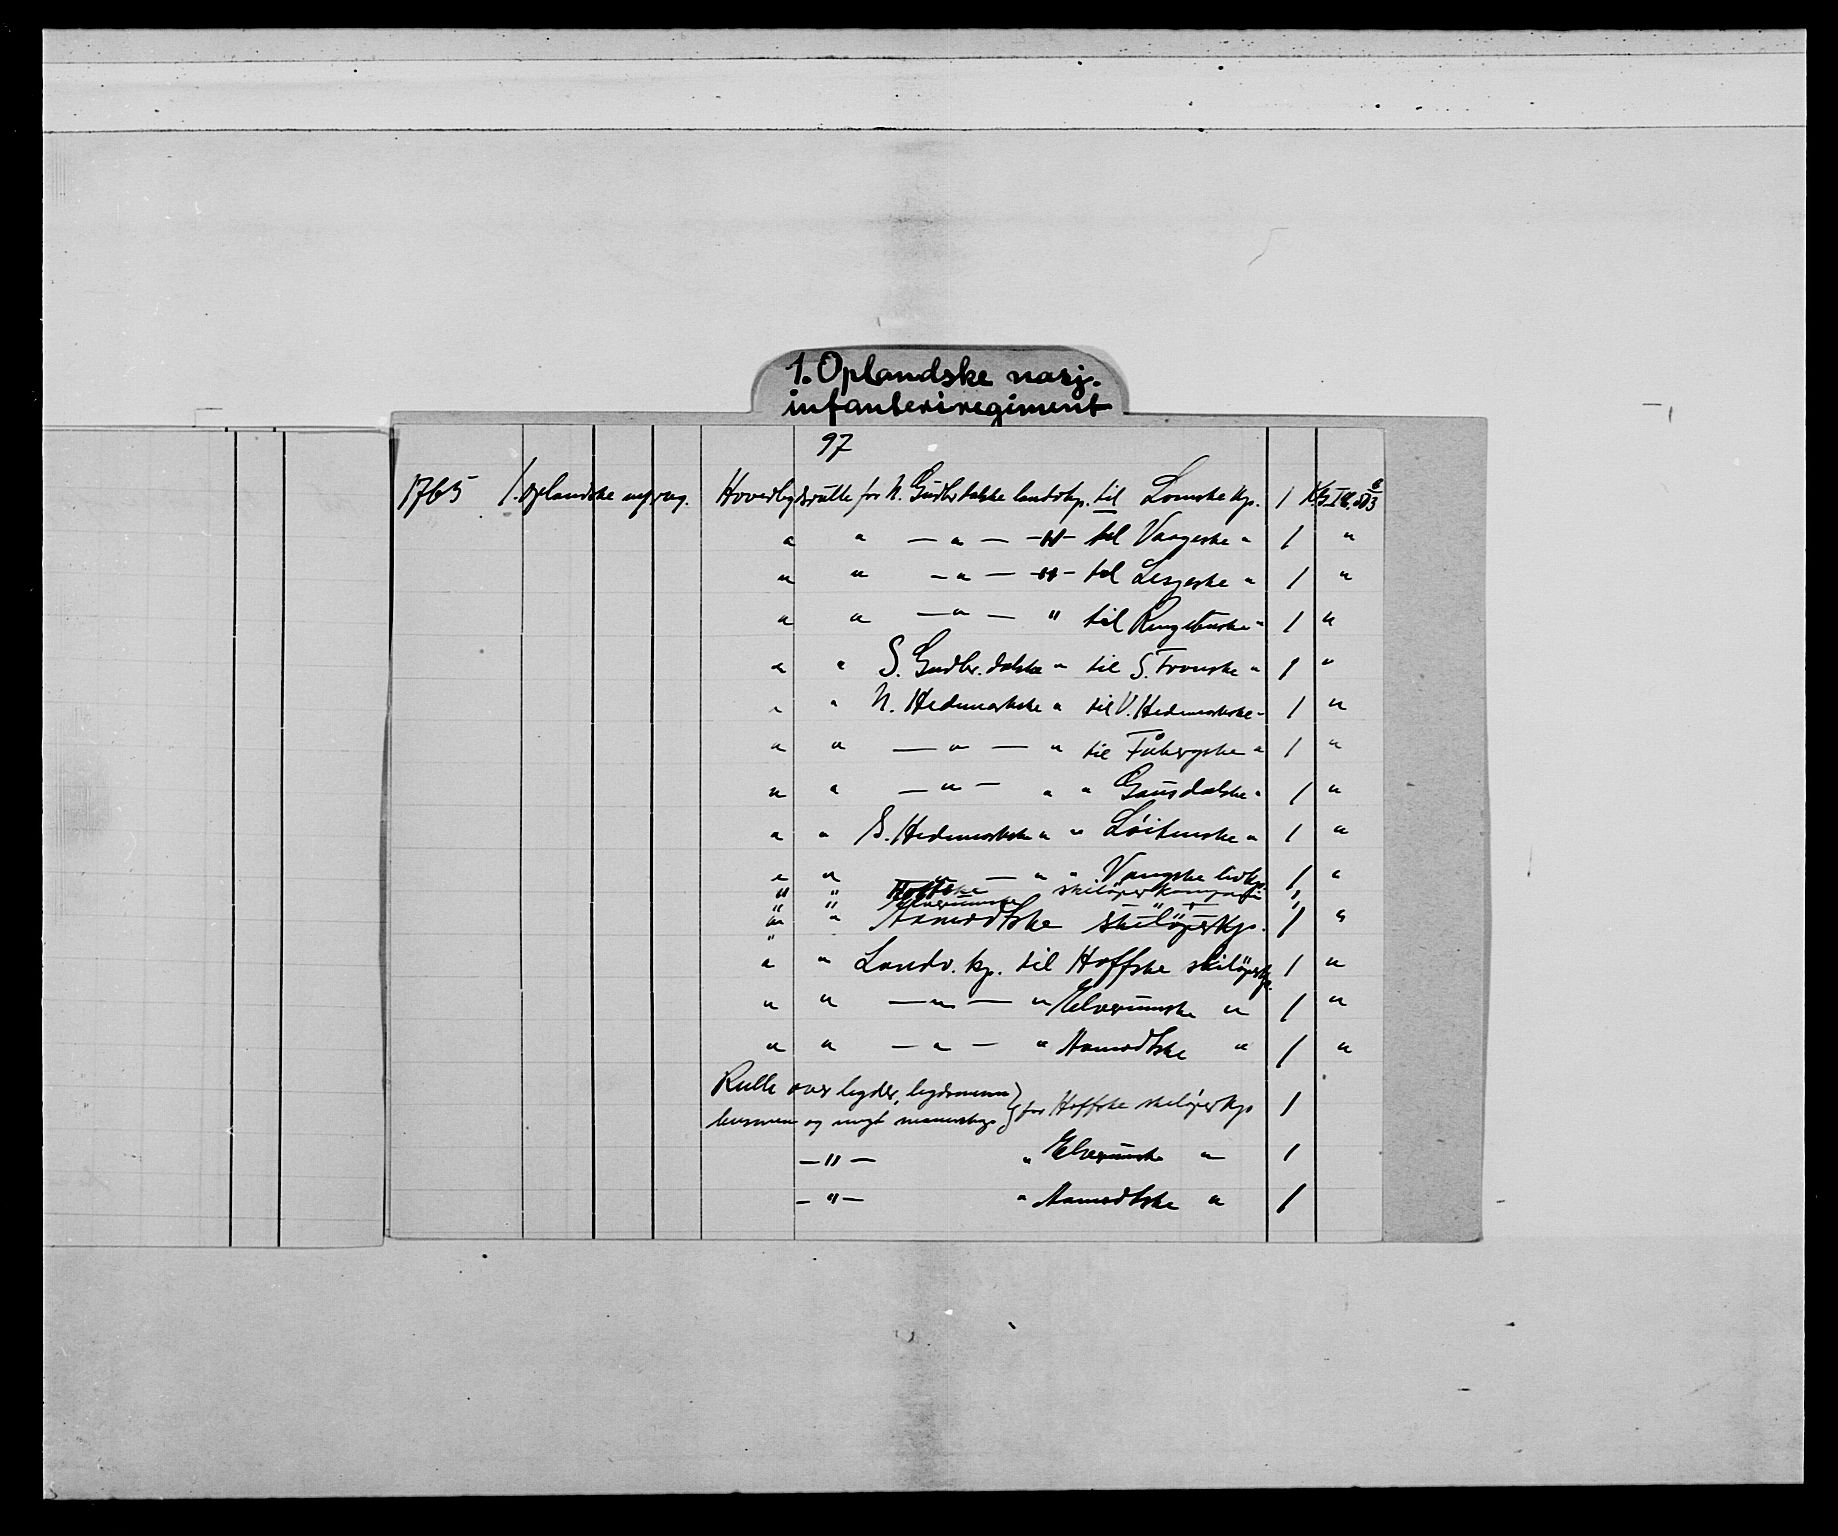 1. Oplandske nasj.
infanteriregiment
97
1765 1. oplandske inf.reg. Hovedlegdsrulle for N. Gudbr.dalske landv.kp. til Lomske kp. 1
" " — " — — " — til Vaageske " 1 "
" " — " — — " — til Lesjeske " 1 "
" " — " — " til Ringebuske " 1 "
" " S. Gudbr.dalske " til S. Fronske " 1 "
" " N. Hedemarkske " til V. Hedemarkske " 1 "
" " — " — " til Fåbergske " 1 "
" " — " — " " Gausdalske " 1 "
" " S. Hedemarkske " " Löitenske " 1 "
" " — " — " " Vangske livkp. 1 "
" " Hoffske skilöperkompagni 1
" " Elverumske — " — 1
" " Aamodtske skilöperkp. 1 "
" " Landv. kp. til Hoffske skilöperkp. 1 "
" " — " — " Elverumske " 1 "
" " — " — " Aamodtske " 1 "
Rulle over legder, legdsmenn } for Hoffske skilöperkp 1
husmenn og ungt mannskap }
— " — " Elverumske " 1
— " — " Aamodtske " 1